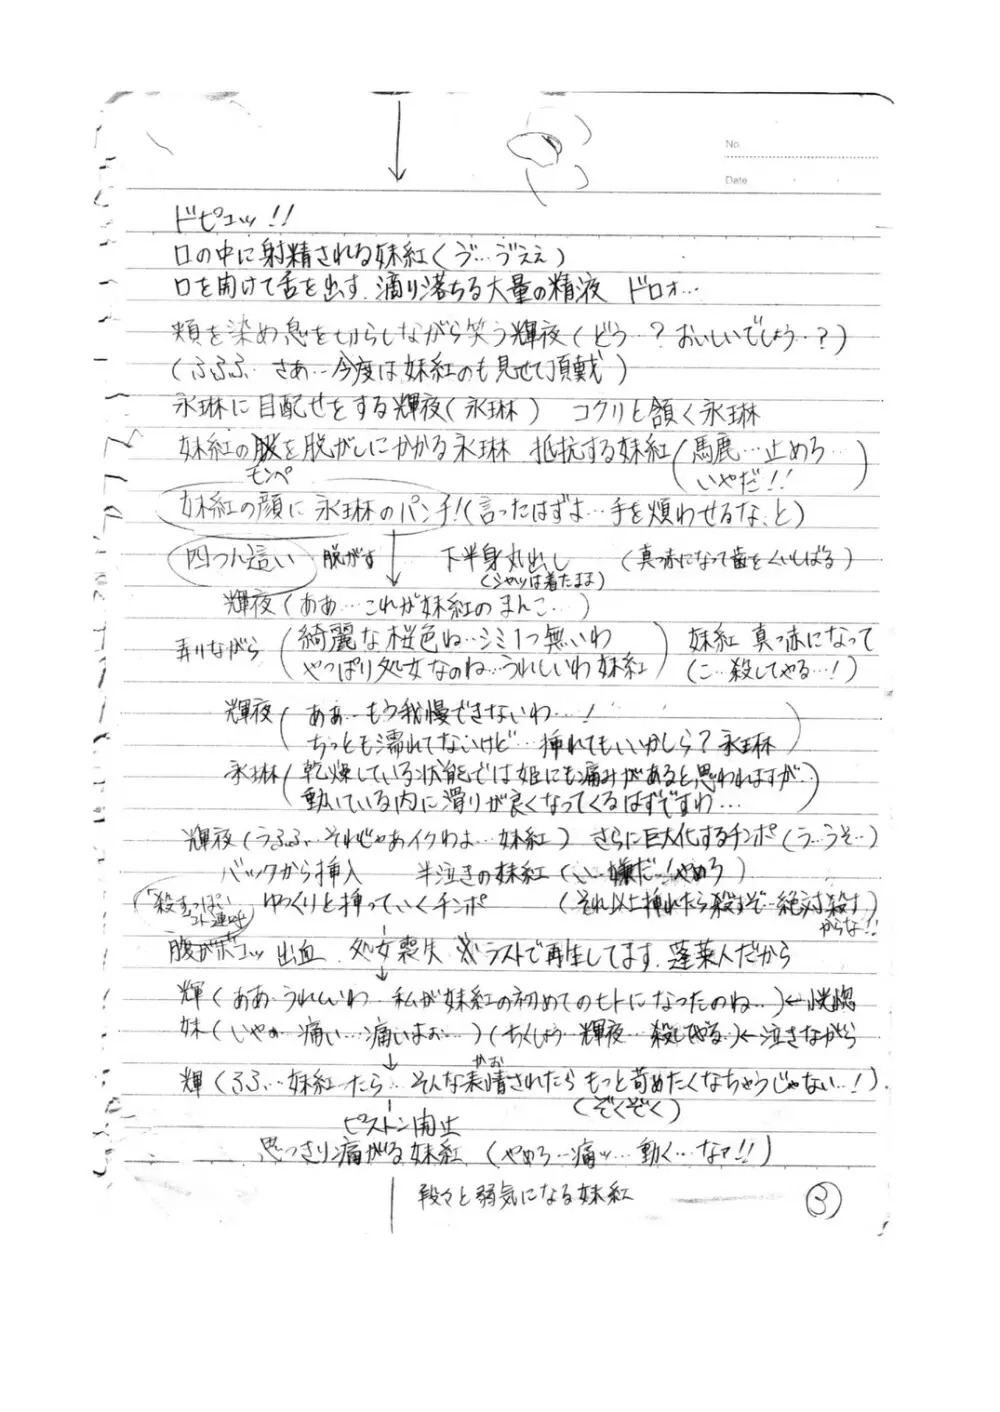 No.
Date
ドピュッ!!
口の中に射精される妹紅(ゔ…ゔええ)
口を開けて舌を出す.滴り落ちる大量の精液 ドロォ…
頬を染め息をきらしながら笑う輝夜(どう…?おいしいでしょう…?)
(ふふふ…さあ…今度は妹紅のも見せて頂戴)
永琳に目配せをする輝夜(永琳) コクリと頷く永琳
妹紅の服を脱がしにかかる永琳 抵抗する妹紅(馬鹿…止めろ…いやだ!!)
モンペ
妹紅の顔に永琳のパンチ!(言ったはずよ…手を煩わせるな、と)
四つん這い 脱がす 下半身丸出し (真っ赤になって歯をくいしばる)
(シャツは着たまま)
輝夜(ああ…これが妹紅のまんこ…)
弄りながら(綺麗な桜色ね…シミ1つ無いわ 妹紅 真っ赤になって
やっぱり処女なのね…うれしいわ妹紅) (こ…殺してやる…!)
輝夜(ああ…もう我慢できないわ…!
ちっとも濡れてないけど…挿れてもいいかしら?永琳)
永琳(乾燥している状態では姫にも痛みがあると思われますが…
動いている内に滑りが良くなってくるはずですわ…)
輝夜(うふふ…それじゃあイクわよ…妹紅) さらに巨大化するチンポ(う…うそ…)
バックから挿入 半泣きの妹紅(い…嫌だ…!やめろ)
「殺すっぽいコト連呼」 ゆっくりと挿っていくチンポ (それ以上挿れたら殺すぞ…絶対殺すからな!!)
腹がボコッ 出血 処女喪失 ※ラストで再生してます.蓬莱人だから
輝(ああ…うれしいわ…私が妹紅の初めてのヒトになったのね…)←恍惚
妹(いやぁ…痛い…痛いよぉ…)(ちくしょう…輝夜…殺してやる…)←泣きながら
輝(ふふ…妹紅ったら…そんな表情されたらもっと苛めたくなちゃうじゃない…!)
かお
(ぞくぞく)
ピストン開始
思っきり痛がる妹紅 (やめろ…痛ッ…動く…なァ!!)
段々と弱気になる妹紅
③